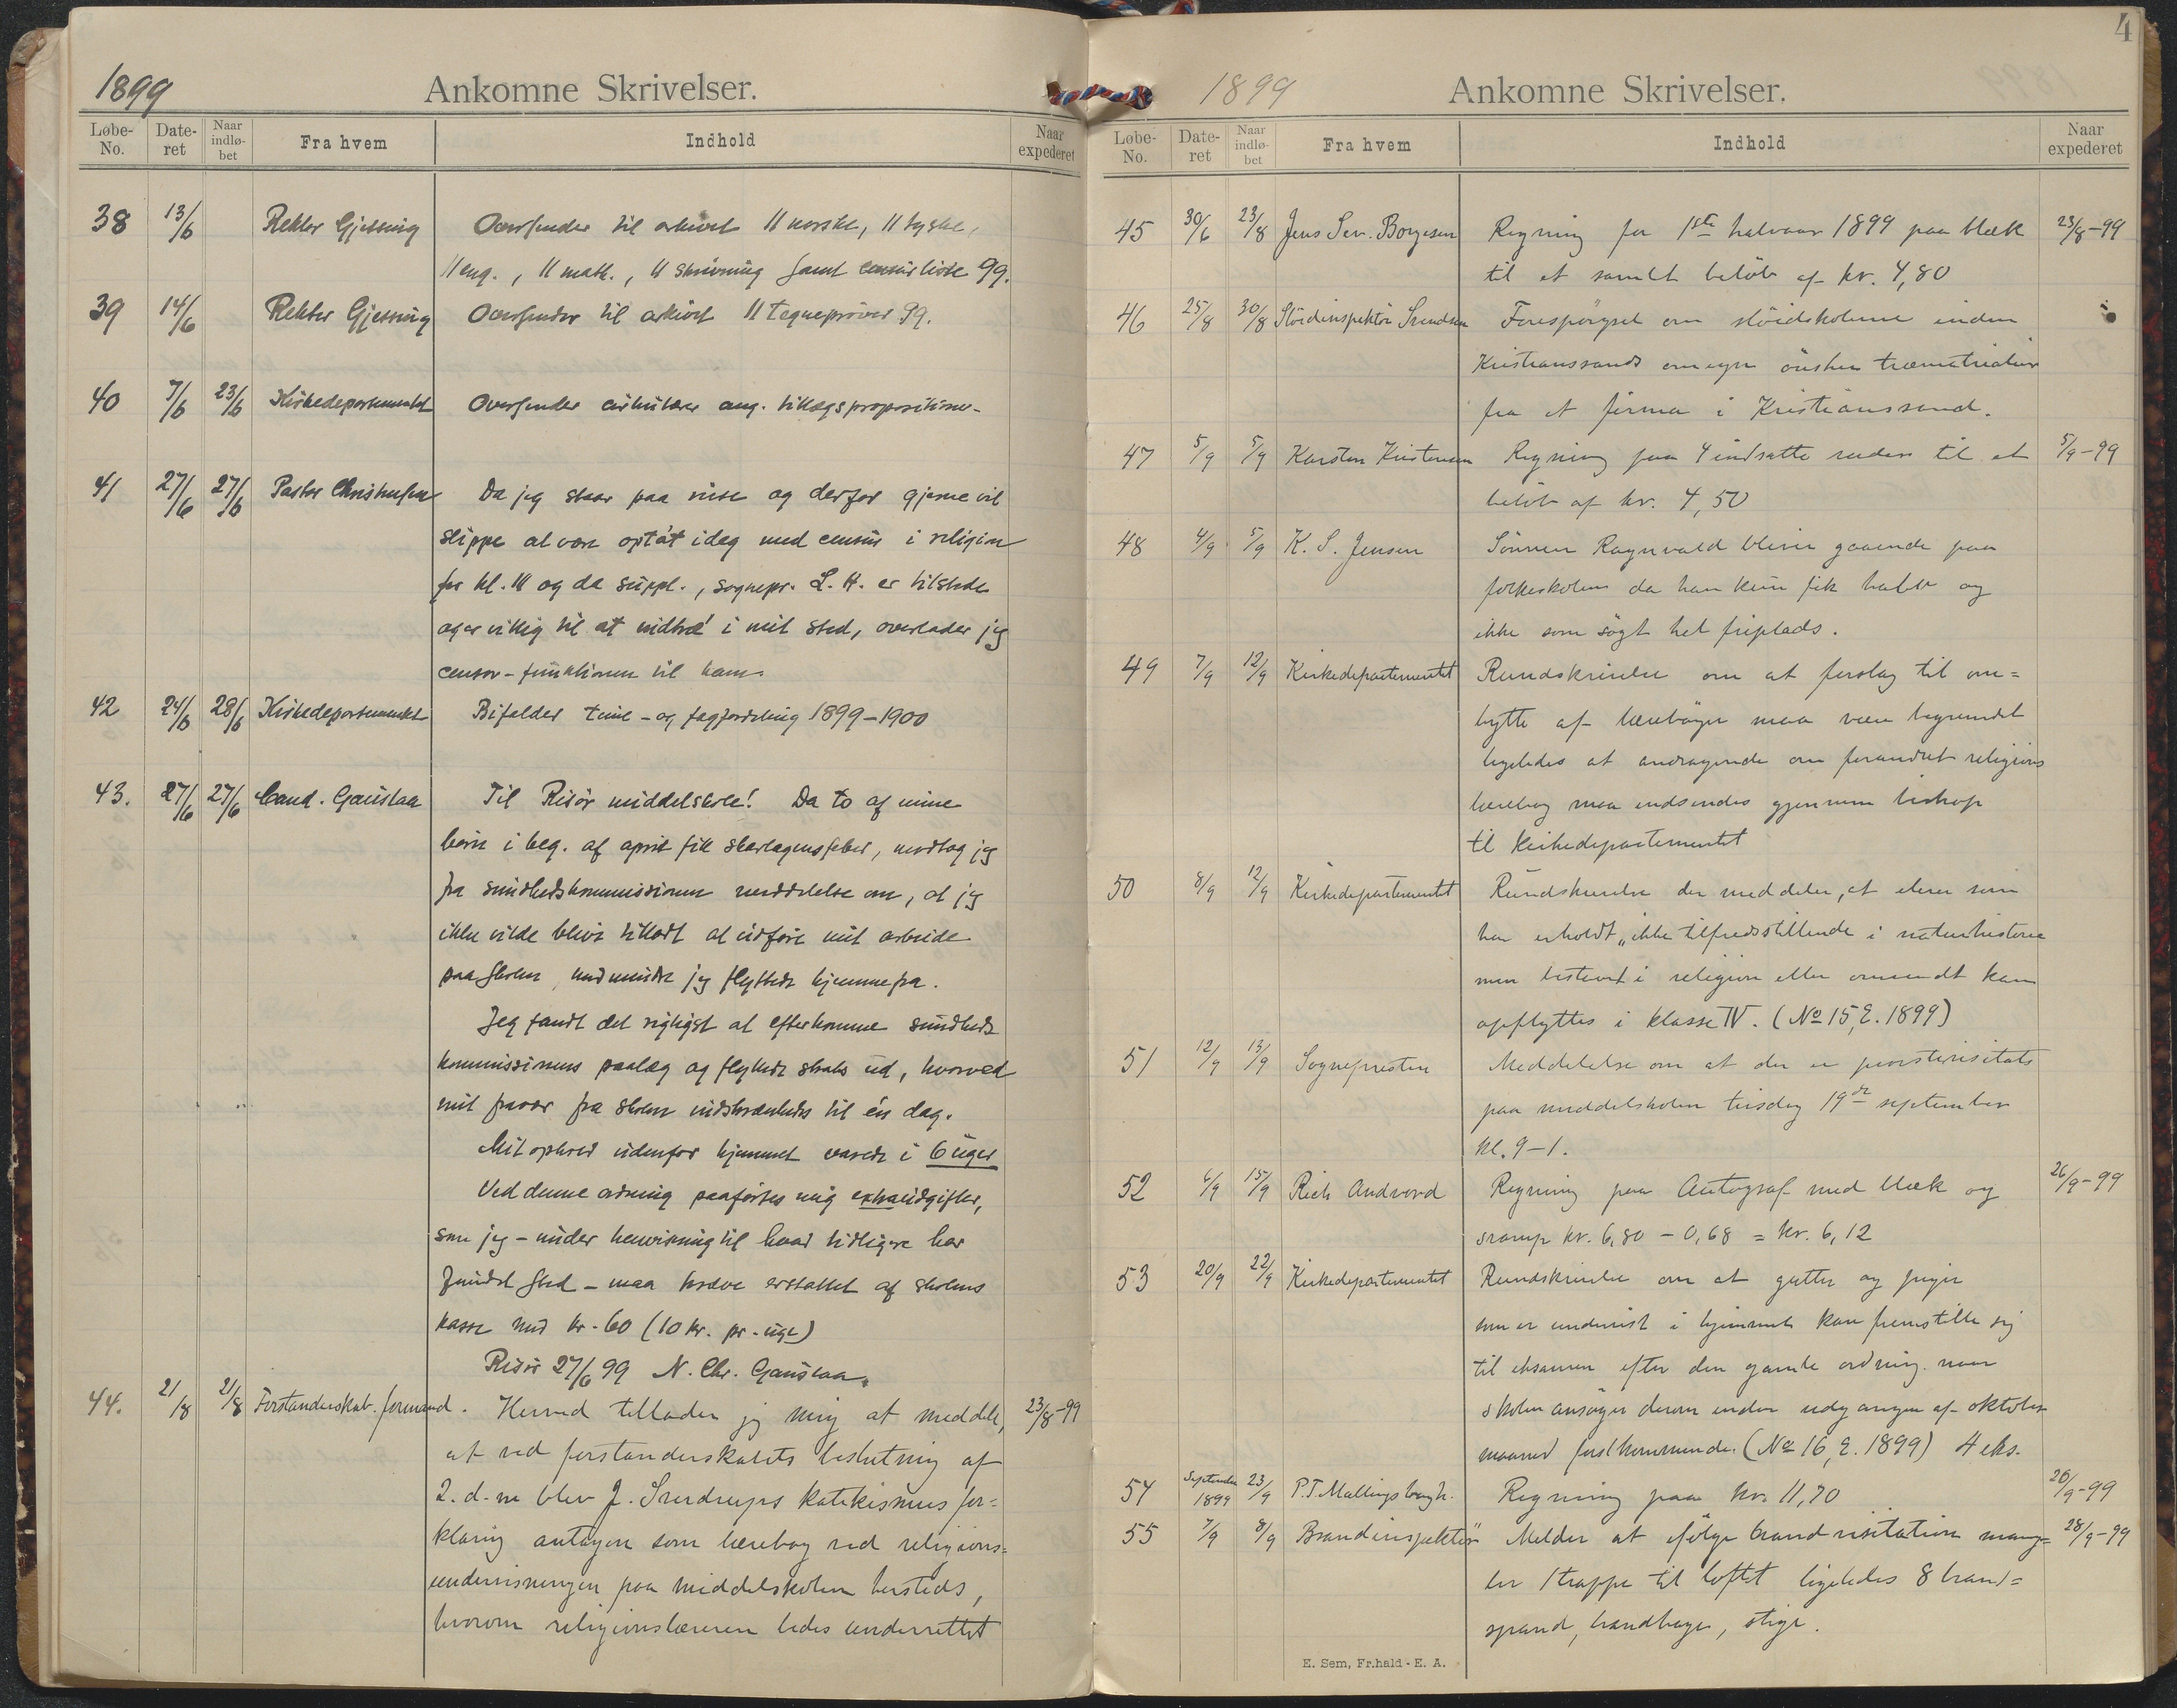 1899 Ankomne Skrivelser.
Løbe-No. Date-ret Naar indlø-bet Fra hvem Indhold Naar expederet
38 13/6 Rektor Gjessing Oversender til arkivet 11 norske, 11 tyske,
11 eng., 11 math., 11 skrivning samt censurliste 99.
39 14/6 Rektor Gjessing Oversender til arkivet 11 tegneprøver 99.
40 7/6 23/6 Kirkedepartementet Oversender cirkulære ang. tillægspropositioner.
41 27/6 27/6 Pastor Christensen Da jeg staar paa reise og derfor gjerne vil
slippe at være optat idag med censur i religion
for kl. III og da suppl., sognepr. L. H. er tilstede
og er villig til at indtræ i mit sted, overlader jeg
censor-funktionen til ham.
42 24/6 28/6 Kirkedepartementet Bifalder time- og fagfordeling 1899-1900
43. 27/6 27/6 Cand. Gauslaa Til Risør middelskole! Da to af mine
børn i beg. af april fik skarlagensfeber, modtog jeg
fra sundhedskommissionen meddelelse om, at jeg
ikke vilde blive tilladt at udføre mit arbeide
paa skolen, medmindre jeg flyttede hjemmefra.
Jeg fandt det rigtigst at efterkomme sundheds
kommissionens paalæg og flyttede straks ud, hvorved
mit fravær fra skolen indskrænkedes til én dag.
Mit ophold udenfor hjemmet varede i 6 uger
Ved denne ordning paaførtes mig extraudgifter,
som jeg - under henvisning til hvad tidligere har
fundet sted - maa kræve erstattet af skolens
kasse med kr. 60 (10 kr. pr. uge)
Risør 27/6 99 N. Chr. Gauslaa.
44. 21/8 21/8 Forstanderskab. formand. Herved tillader jeg mig at meddele, 23/8-99
at ved forstanderskabets beslutning af
2. d. m blev J. Sverdrups katekismus for=
klaring antagen som lærebog ved religions=
undervisningen paa middelskolen hersteds,
hvorom religionslæreren bedes underrettet
4
1899 Ankomne Skrivelser.
Løbe-No. Date-ret Naar indlø-bet Fra hvem Indhold Naar expederet
45 30/6 23/8 Jens Sev. Borgesen Regning for 1ste halvaar 1899 paa blæk 23/8-99
til et samlet beløb af kr. 4,80
46 25/8 30/8 Slöidinspektör Svendsen Forespörgsel om slöidskolerne inden
Kristianssands omegn önsker træmaterialier
fra et firma i Kristianssand.
47 5/9 5/9 Karsten Kristensen Regning paa 4 indsatte ruder til et 5/9-99
beløb af kr. 4,50
48 4/9 5/9 K. S. Jensen Sönnen Ragnvald bliver gaaende paa
folkeskolen da han kun fik halv og
ikke som sögt hel friplads.
49 7/9 12/9 Kirkedepartementet Rundskrivelse om at forslag til om=
bytte af læreböger maa være begrundet
ligeledes at andragende om forandret religions
lærebog maa indsendes gjennem biskop
til Kirkedepartementet
50 8/9 12/9 Kirkedepartementet Rundskrivelse der meddeler, at elever som
har erholdt „ikke tilfredsstillende i naturhistorie
men bestaaet i religion eller omvendt kan
opflyttes i klasse IV. (No 15, E. 1899)
51 12/9 13/9 Sognepresten Meddelelse om at der er provstevisitats
paa middelskolen tirsdag 19de september
kl. 9-1.
52 6/9 15/9 Rich Andvord Regning paa Autograf med blæk og 26/9-99
svamp kr. 6,80 - 0,68 = kr. 6,12
53 20/9 22/9 Kirkedepartementet Rundskrivelse om at gutter og piger
som er undervist i hjemmet kan fremstille sig
til eksamen efter den gamle ordning. naar
skolen ansöger derom inden udgangen af oktober
maaned förstkommende. (No 16, E. 1899) 4 eks.
54 September 1899 23/9 P. T. Mallings bogh. Regning paa kr. 11,70 26/9-99
55 7/9 8/9 Brandinspektör Melder at ifölge brandvisitation mang= 28/9-99
ler 1 trappe til loftet ligeledes 8 brand=
spand, brandhage, stige.
E. Sem, Fr.hald - E. A.